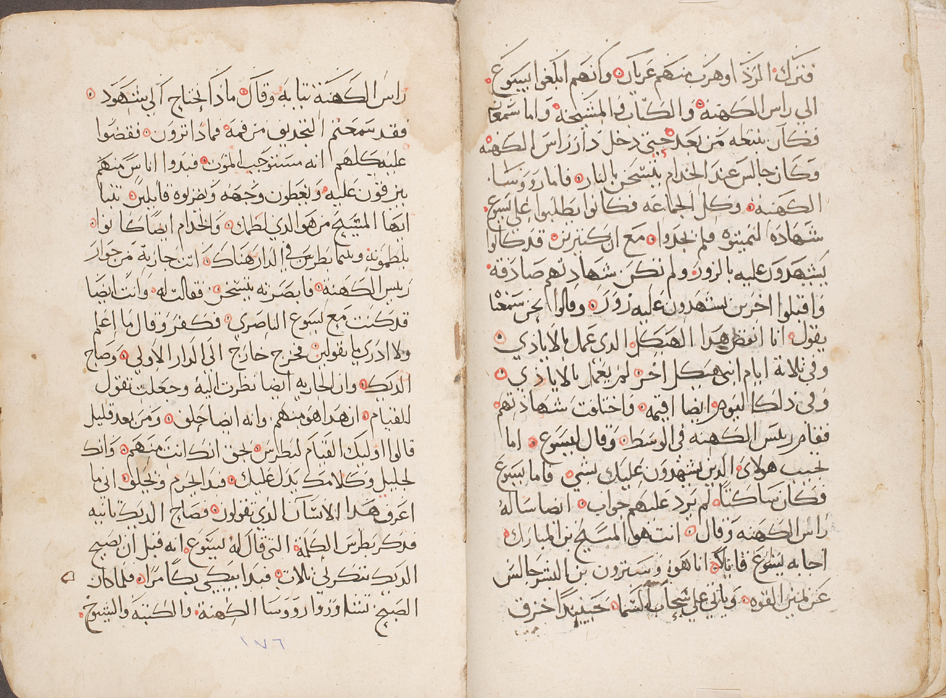 فترك الرداوهرب منهم عريان وانهم ابلغوا ايسوع
الي راس الكهنه والكتاب والمشيخة واما سمعان
فكان يتبعه من بعد حتي دخل دار راس الكهنه
وكان جالس عند الخدام يتسخن بالنار فاما روسا
الكهنة وكل الجماعه فكانوا يطلبوا علي يسوع
شهادة لتميتوه فلم يجدوا مع ان كتيرين قد كانوا
يشهدون عليه بالزور ولم تكن شهادتهم صادقه
واقبلوا اخرين يشهدون عليه زور وقالوا نحن سمعنا
يقول انا انقض هدا الهيكل الدي عمل بالايادي
وفي تلاتة ايام ابني هيكل اخر لم يعمل بالايادي
وفي دلك اليوم ايضا فيه واختلفت شهادتهم
فقام ريس الكهنه في الوسط وقال ليسوع اما
تجيب هولاي الدين يشهدون عليك بشي فاما يسوع
فكان ساكتا لم يرد عليهم جواب ايضا ساله
راس الكهنه وقال انت هوا المسيح بن المبارك
اجابه يسوع قايلا انا هو وسترون بن البشر جالس
عن يمين القوه وياتي علي سحاب السما حينيدا خرق
راس الكهنة تيابه وقال مادا نحتاج الي شهود
فقد سمعتم التجديف من فمه فمادا ترون فقضوا
عليه كلهم انه مستوجب الموت فبدوا اناس منهم
يبزقون عليه ويغطون وجهه ويضربوه قايلين تنبا
ايها المسيح من هو الدي لطمك والخدام ايضا كانوا
يلطمونه وبينما بطرس في الدار هناك اتت جاريه من جوار
ريس الكهنة فابصرته يتسخن فقالت له وانت ايضا
قد كنت مع يسوع الناصري فكفر وقال ما اعلم
ولا ادري ما تقولين فخرج خارج الي الدار الاولي وصاح
الديك وان الجاريه ايضا نظرت اليه وجعلت تقول
للقيام ان هدا هو منهم وانه ايضا حلف ومن بعد قليل
قالوا اوليك القيام لبطرس بحق انك انت منهم وانك
جليل وكلامك يدل عليك فبدا يحرم ويحلف اني ما
اعرف هدا الانسان الدي تقولون فصاح الديك تانيه
فدكر بطرس الكلمة التي قال له يسوع انه قبل ان يصيح
الديك تنكرني تلات فبدا يبكي بكا مرا فلما كان
الصبح تشاوروا روسا الكهنة والكتبة والشيوخ
١٧٦